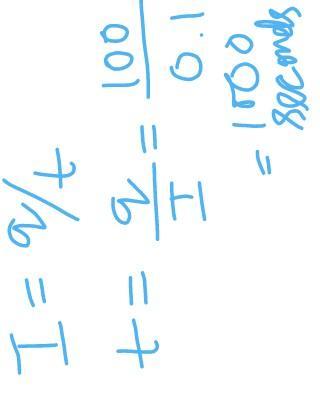 I = q/t
t = q/I = 100/0.1
= 1000
seconds